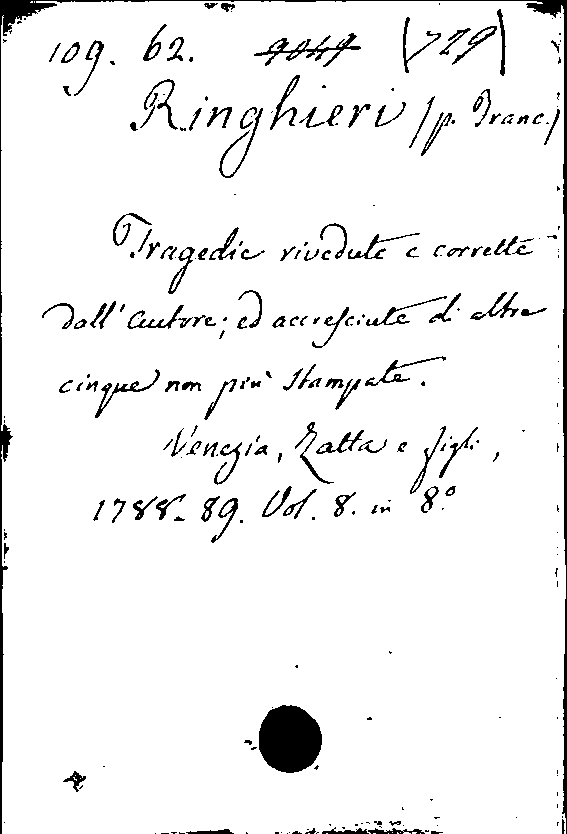 109. 62. 9049 (729)
Ringhieri (p. Franc.)
Tragedie rivedute e corrette
dall' autore; ed accresciute di altre
cinque non più stampate.
Venezia, Zatta e figli,
1788-89. Vol. 8. in 8.º